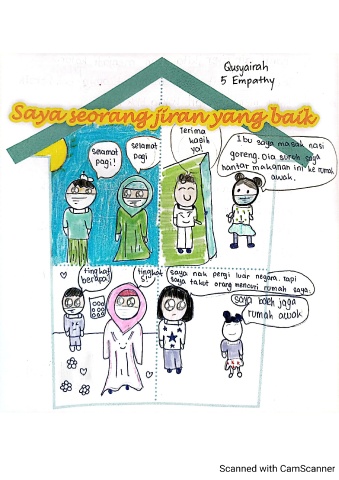 Qusyairah
5 Empathy
Saya seorang jiran yang baik
selamat
pagi!
selamat
pagi
Terima
kasih
ya!
Ibu saya masak nasi
goreng. Dia suruh saya
hantar makanan ini ke rumah
awak.
tingkat
berapa?
tingkat
5!
saya nak pergi luar negara. tapi
saya takut orang mencuri rumah saya.
Saya boleh jaga
rumah awak
Scanned with CamScanner